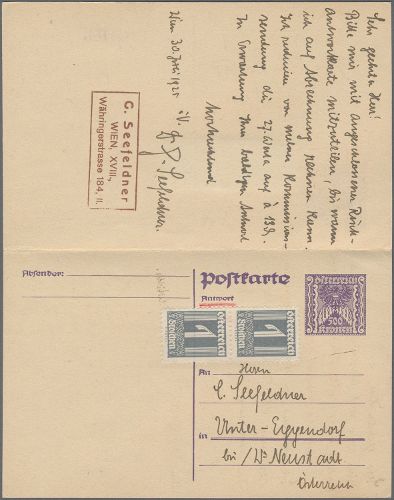 Sehr geehrter Herr!
Bitte mir mit angeschlossener Rück-
antwortkarte mitzuteilen, bis wann
ich auf Abrechnung rechnen kann.
Ich reduciere von meiner Kommissions-
sendung die 27 Werte auf à 13 S.
In Erwartung Ihrer baldigen Antwort
hochachtend
i.V. Seefeldner
Wien 30. Juli 1925
G. Seefeldner
WIEN, XVIII,
Währingerstrasse 184, II.
Absender:
Postkarte
Antwort
Österreich
500
KRONEN
Österreich
1
Groschen
Österreich
1
Groschen
An Herrn
Seefeldner
in Unter-Eggendorf
bei / Wr Neustadt
Österreich